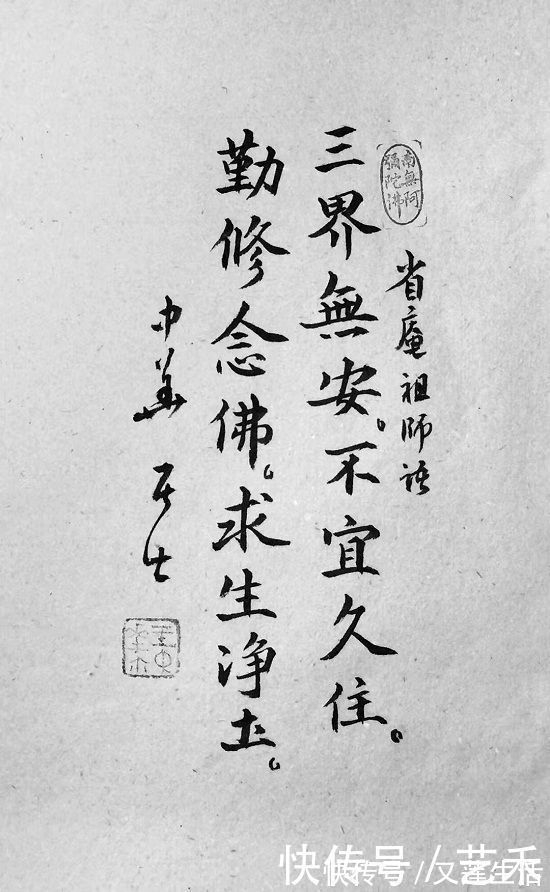 南無阿
彌陀佛
省庵祖師語
三界無安。不宜久住。
勤修念佛。求生净土。
居士
快传号 //
快传号 // 又莲生活